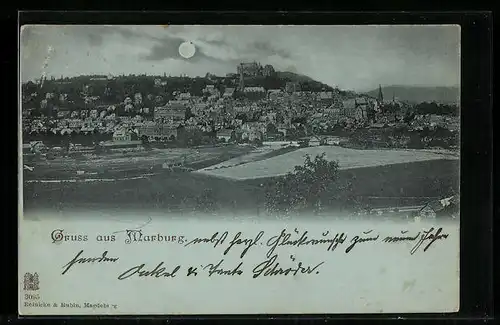 Gruss aus Marburg, nebst herzl. Glückwunsch zum neuen Jahre
senden Onkel & Tante Schröder.
3095
Reinicke & Rubin, Magdeburg